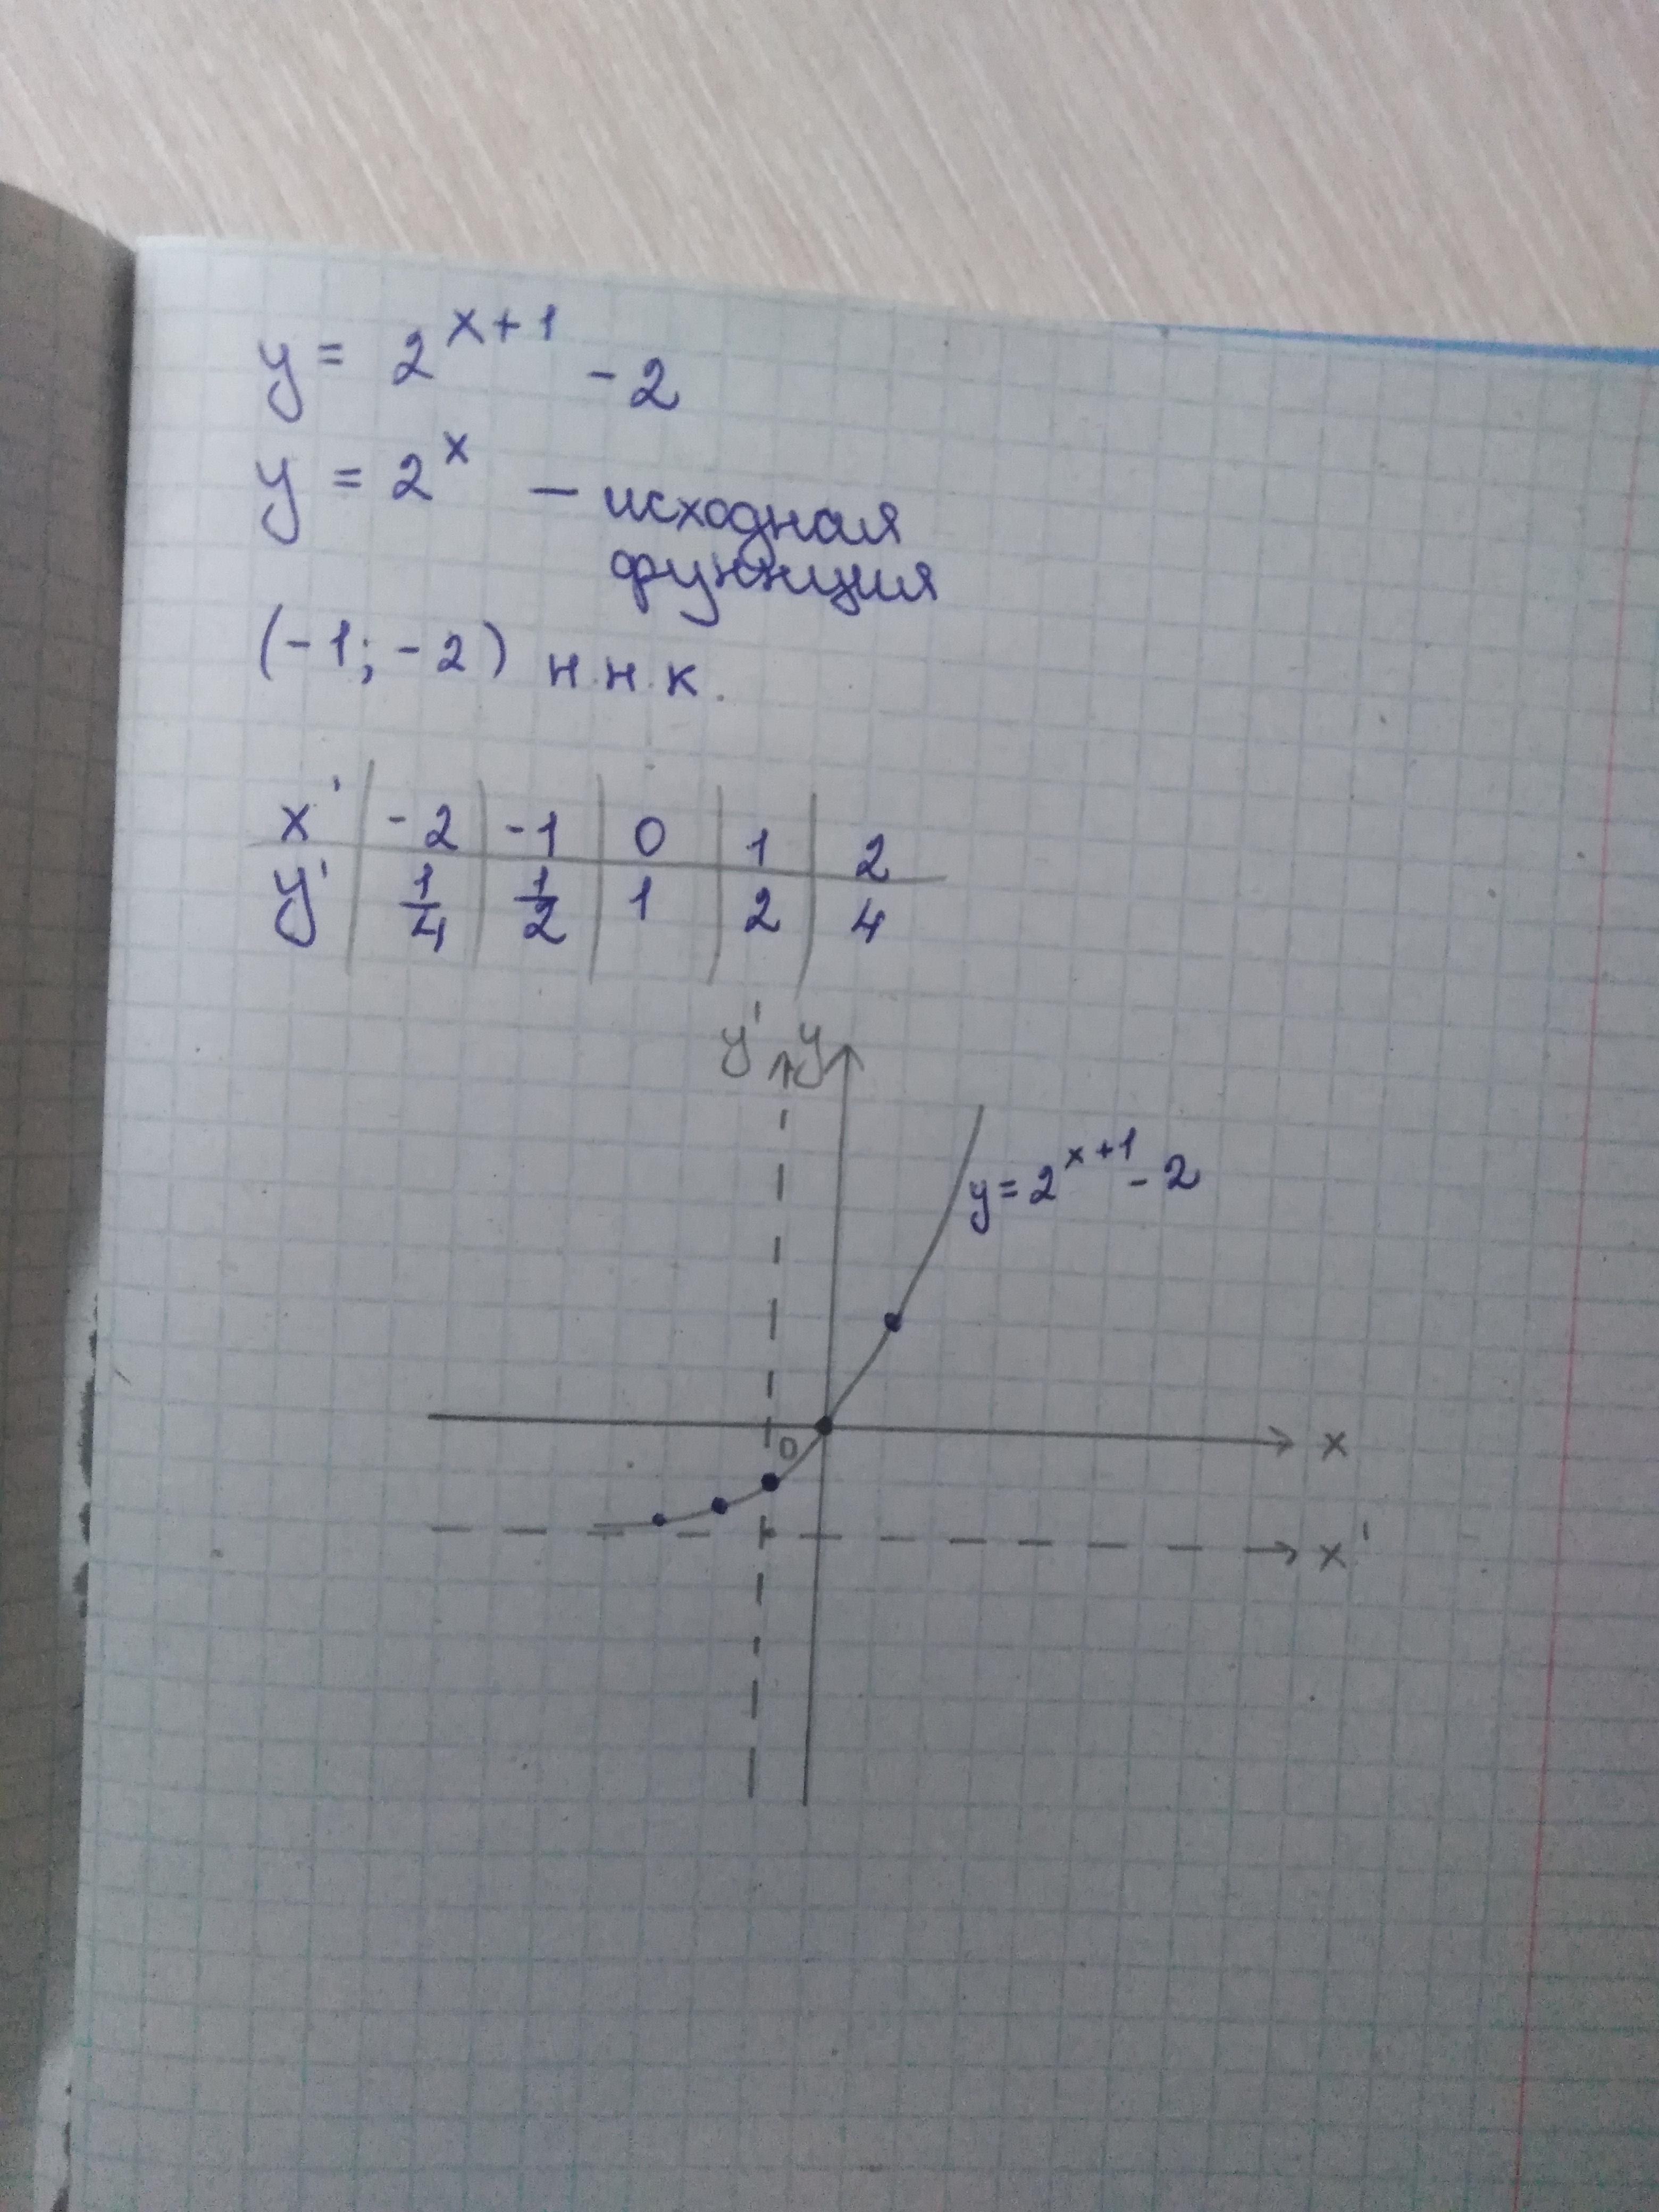 y = 2^(x+1) - 2
y = 2^x — исходная
функция
(-1; -2) н.н.к.
x' | -2 | -1 | 0 | 1 | 2
y' | 1/4 | 1/2 | 1 | 2 | 4
y' y
y = 2^(x+1) - 2
0
x
x'